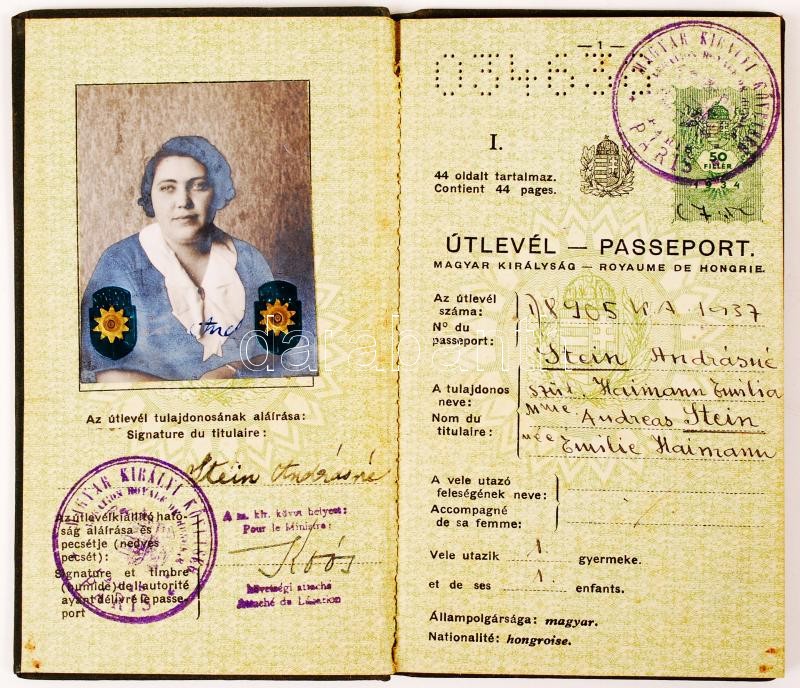 Az útlevél tulajdonosának aláírása:
Signature du titulaire:
Stein Andrásné
MAGYAR KIRÁLYI KÖVETSÉG
PARIS
Az útlevélkiállító ható-
ság aláírása és
pecsétje (nedves
pecsét):
Signature et timbre
(humide) de l'autorité
ayant délivré le passe-
port
A m. kir. követ helyett:
Pour le Ministre:
Koós
követségi attaché
Attaché de Légation
— 1 —
034633
MAGYAR KIRÁLYI KÖVETSÉG
PARIS
50
FILLÉR
1934
I.
44 oldalt tartalmaz.
Contient 44 pages.
ÚTLEVÉL — PASSEPORT.
MAGYAR KIRÁLYSÁG — ROYAUME DE HONGRIE.
Az útlevél
száma:
N° du
passeport:
1937
A tulajdonos
neve:
Nom du
titulaire:
Stein Andrásné
szül. Haimann Emilia
Mme Andreas Stein
née Emilie Haimann
A vele utazó
feleségének neve:
Accompagné
de sa femme:
Vele utazik 1. gyermeke.
et de ses 1. enfants.
Állampolgársága: magyar.
Nationalité: hongroise.
darabanth